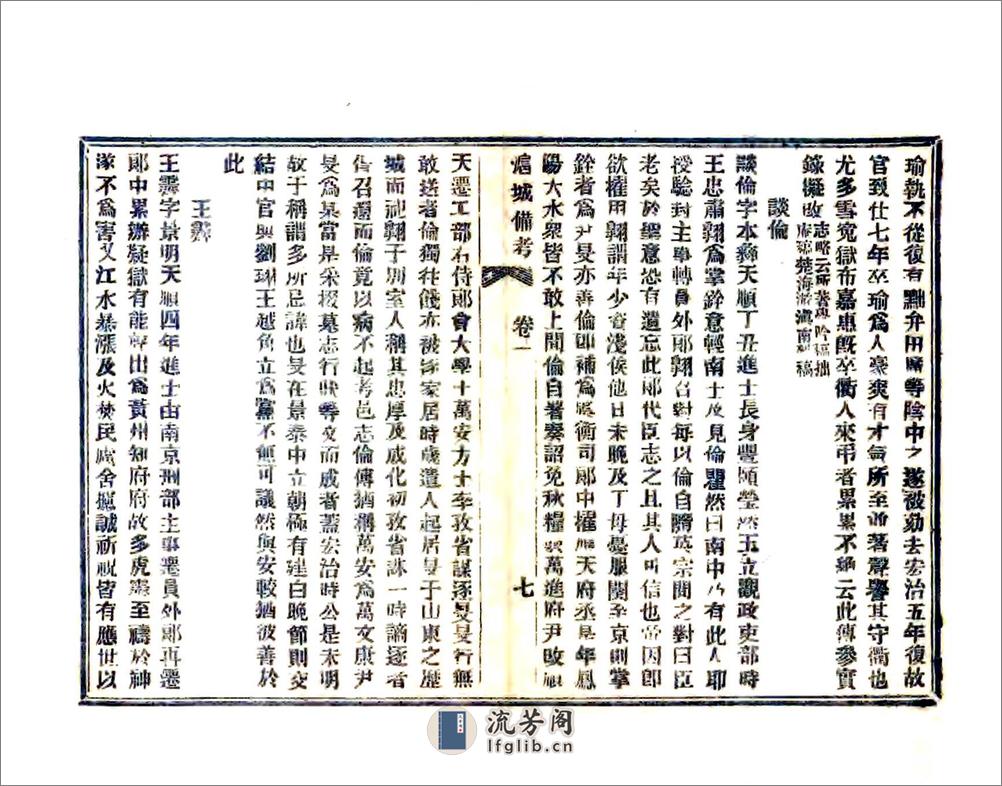 瑜執不從復有黜弁用賄等陰中之遂被劾去宏治五年復故
官致仕七年卒瑜爲人豪爽有才氣所至並著聲譽其守衢也
尤多雪冤獄布嘉惠旣卒衢人來弔者累累不絶云此傳參實
錄擬改志略云所著
談倫
談倫字本彝天順丁丑進士長身豐頤瑩然玉立觀政吏部時
王忠肅翺爲掌銓意輕南士及見倫瞿然曰南中乃有此人耶
授驗封主事轉員外郎翺召對每以倫自隨英宗問之對曰臣
老矣於聖意恐有遺忘此郎代臣志之且其人可信也嘗因郎
欲擢用翺謂年少資淺俟他日未晚及丁母憂服闋至京則掌
銓者爲尹旻亦善倫卽補爲虞衡司郎中擢順天府丞是年鳳
陽大水衆皆不敢上聞倫自署奏詔免秋糧數萬進府尹改順
滬城備考 卷一 七
天遷工部右侍郎會大學士萬安方士李孜省謀逐旻旻行無
敢送者倫獨往餞亦被逐家居時歲遣人起居旻于山東之歷
城而祀翺于別室人稱其忠厚及成化初孜省誅一時謫逐者
皆召還而倫竟以病不起考邑志倫傳猶稱萬安爲萬文康尹
旻爲某當是采掇墓志行狀等文而成者蓋宏治時公是未明
故于稱謂多所忌諱也旻在景泰中立朝極有建白晚節則交
結中官與劉珝王越角立爲黨不無可議然與安較猶彼善於
此
王霽
王霽字景明天順四年進士由南京刑部主事遷員外郎再遷
郎中累辦疑獄有能聲出爲黃州知府府故多虎霽至禱於神
遂不爲害又江水暴漲及火焚民廬舍攄誠祈祝皆有應世以
流芳阁
lfglib.cn